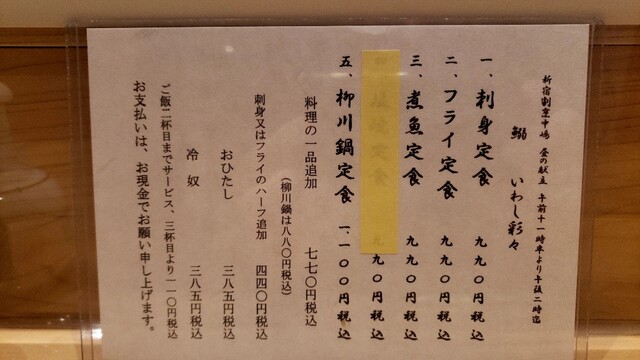 新宿割烹中嶋 昼の献立 午前十一時半より午後二時迄
鰯 いわし彩々
一、刺身定食 九九〇円税込
二、フライ定食 九九〇円税込
三、煮魚定食 九九〇円税込
塩焼定食 九九〇円税込
五、柳川鍋定食 一、一〇〇円税込
料理の一品追加 七七〇円税込
(柳川鍋は八八〇円税込)
刺身又はフライのハーフ追加 四四〇円税込
おひたし 三八五円税込
冷奴 三八五円税込
ご飯二杯目までサービス、三杯目より一一〇円税込
お支払いは、お現金でお願い申し上げます。